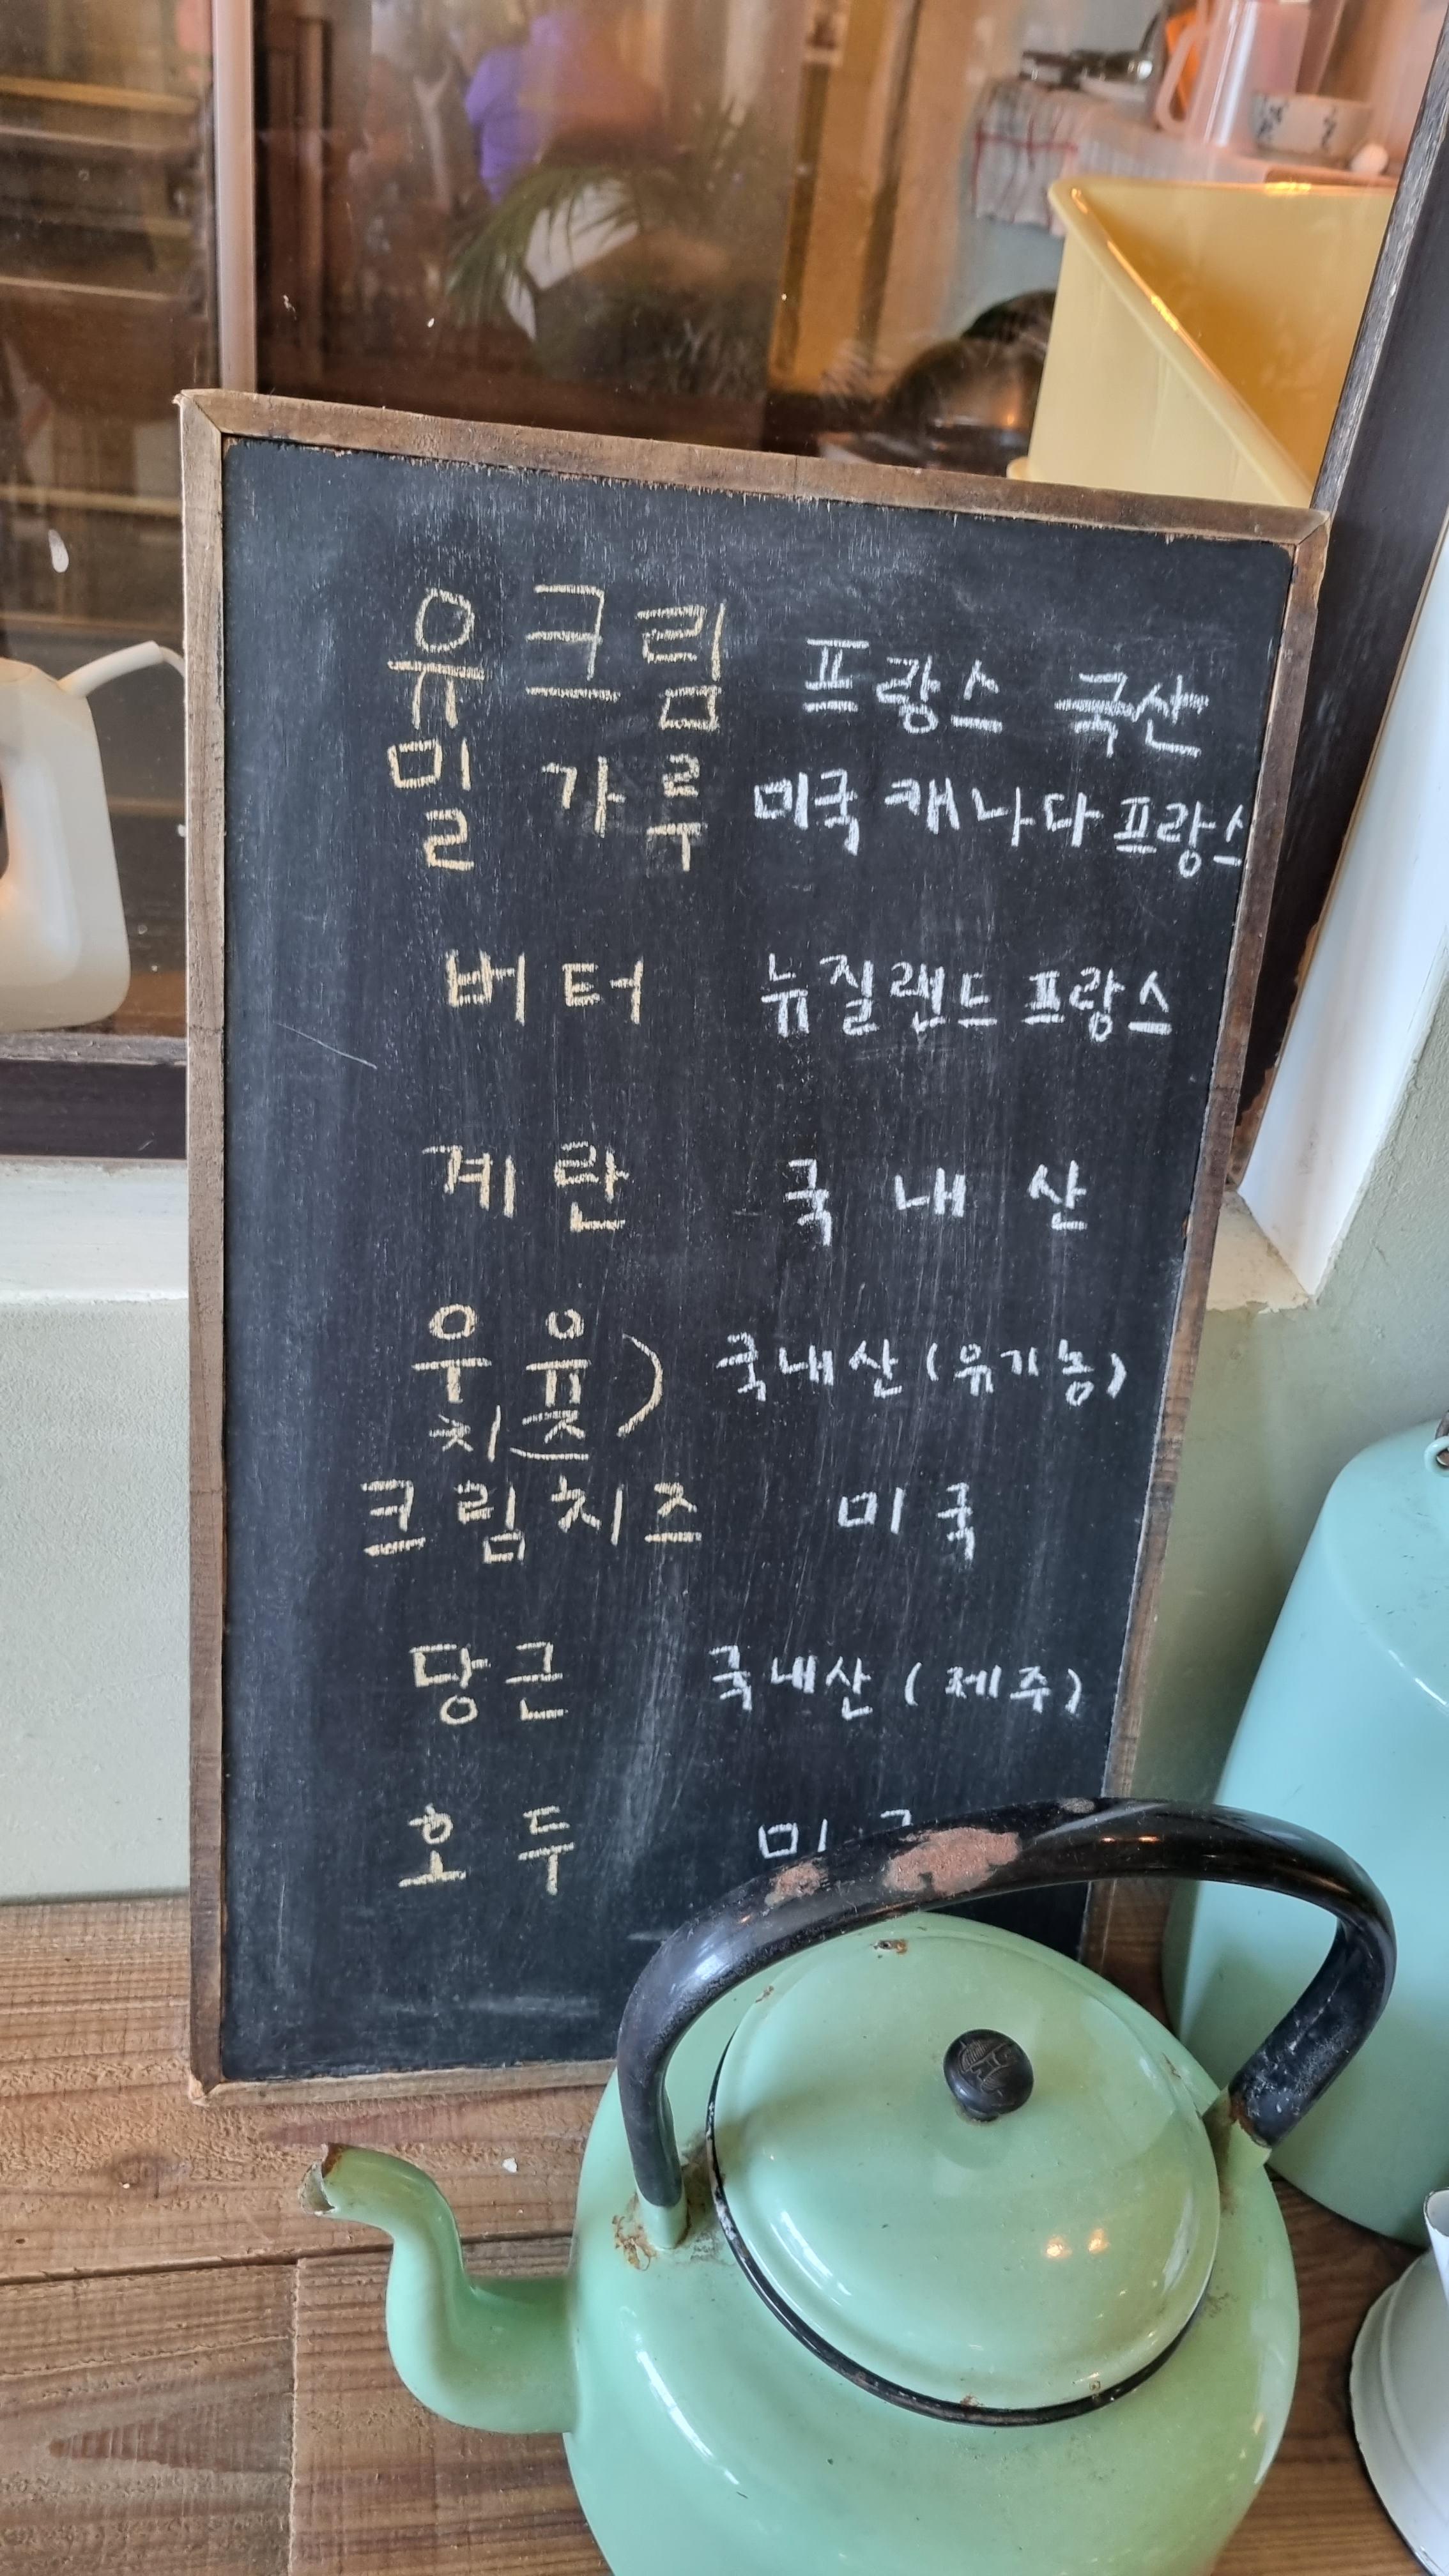 유크림 프랑스 국산
밀가루 미국 캐나다 프랑스
버터 뉴질랜드 프랑스
계란 국내산
우유) 국내산(유기농)
치즈
크림치즈 미국
당근 국내산(제주)
호두